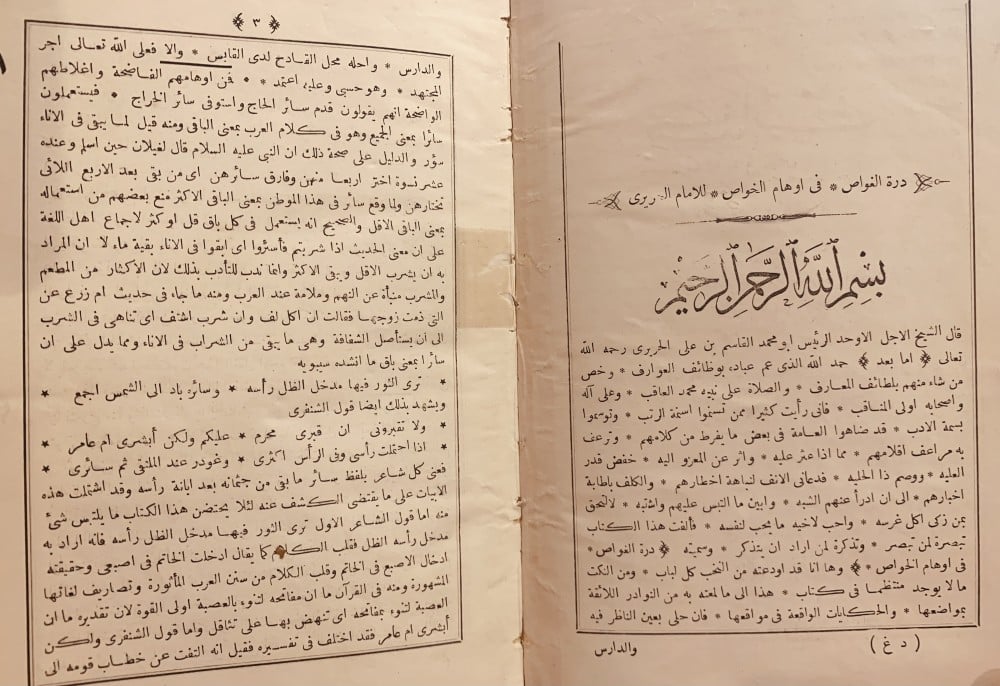 ﴿ درة الغواص * فى اوهام الخواص * للامام الحريرى ﴾
بسم الله الرحمن الرحيم
قال الشيخ الاجل الاوحد الرئيس ابو محمد القاسم بن على الحريرى رحمه الله
تعالى ﴿ اما بعد ﴾ حمد الله الذى عم عباده بوظائف العوارف * وخص
من شاء منهم بلطائف المعارف * والصلاة على نبيه محمد العاقب * وعلى آله
واصحابه اولى المناقب * فانى رأيت كثيرا ممن تسنموا اسنمة الرتب * وتوسموا
بسمة الادب * قد ضاهوا العامة فى بعض ما يفرط من كلامهم * وترعف
به مراعف اقلامهم * مما اذا عثر عليه * واثر عن المعزو اليه * خفض قدر
العليه * ووصم ذا الحليه * فدعانى الانف لنباهة اخطارهم * والكلف باطابة
اخبارهم * الى ان ادرأ عنهم الشبه * وابين ما التبس عليهم واشتبه * لالتحق
بمن زكى اكل غرسه * واحب لاخيه ما يحب لنفسه * فألفت هذا الكتاب
تبصرة لمن تبصر * وتذكرة لمن اراد ان يتذكر * وسميته ﴿ درة الغواص *
فى اوهام الخواص * ﴾ وها انا قد اودعته من النخب كل لباب * ومن النكت
ما لا يوجد منتظما فى كتاب * هذا الى ما لمعته به من النوادر اللائقة
بمواضعها * والحكايات الواقعة فى مواقعها * فان حلى بعين الناظر فيه
( د غ ) والدارس
﴿ ٣ ﴾
والدارس * واحله محل القادح لدى القابس * والا فعلى الله تعالى اجر
المجتهد * وهو حسبى وعليه اعتمد * * فمن اوهامهم الفاضحة واغلاطهم
الواضحة انهم يقولون قدم سائر الحاج واستوفى سائر الخراج * فيستعملون
سائرا بمعنى الجميع وهو فى كلام العرب بمعنى الباقى ومنه قيل لما يبقى فى الاناء
سؤر والدليل على صحة ذلك ان النبى عليه السلام قال لغيلان حين اسلم وعنده
عشر نسوة اختر اربعا منهن وفارق سائرهن اى من بقى بعد الاربع اللائى
تختارهن ولما وقع سائر فى هذا الموطن بمعنى الباقى الاكثر منع بعضهم من استعماله
بمعنى الباقى الاقل والصحيح انه يستعمل فى كل باق قل او كثر لاجماع اهل اللغة
على ان معنى الحديث اذا شربتم فأسئروا اى ابقوا فى الاناء بقية ماء لا ان المراد
به ان يشرب الاقل ويبقى الاكثر وانما ندب للتأدب بذلك لان الاكثار من المطعم
والمشرب منبأة عن النهم وملامة عند العرب ومنه ما جاء فى حديث ام زرع عن
التى ذمت زوجها فقالت ان اكل لف وان شرب اشتف اى تناهى فى الشرب
الى ان يستأصل الشفافة وهى ما يبقى من الشراب فى الاناء ومما يدل على ان
سائرا بمعنى باق ما انشده سيبويه
* ترى الثور فيها مدخل الظل رأسه * وسائره باد الى الشمس اجمع *
ويشهد بذلك ايضا قول الشنفرى
* ولا تقبرونى ان قبرى محرم * عليكم ولكن أبشرى ام عامر *
* اذا احتملت رأسى وفى الرأس اكثرى * وغودر عند الملتقى ثم سائرى *
فعنى كل شاعر بلفظ سائر ما بقى من جثمانه بعد ابانة رأسه وقد اشتملت هذه
الابيات على ما يقتضى الكشف عنه لئلا يحتضن هذا الكتاب ما يلتبس شئ
منه اما قول الشاعر الاول ترى الثور فيها مدخل الظل رأسه فانه اراد به
مدخل رأسه الظل فقلب الكلام كما يقال ادخلت الخاتم فى اصبعى وحقيقته
ادخال الاصبع فى الخاتم وقلب الكلام من سنن العرب المأثورة وتصاريف لغاتها
المشهورة ومنه فى القرآن ما ان مفاتحه لتنوء بالعصبة اولى القوة لان تقديره ما ان
العصبة لتنوء بمفاتحه اى تنهض بها على تثاقل واما قول الشنفرى ولكن
أبشرى ام عامر فقد اختلف فى تفسيره فقيل انه التفت عن خطاب قومه الى